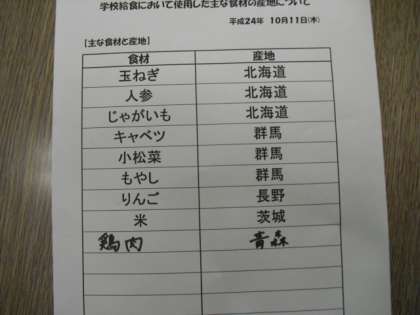 学校給食において使用した主な食材の産地について
平成24年 10月11日(木)
[主な食材と産地]
食材 産地
玉ねぎ 北海道
人参 北海道
じゃがいも 北海道
キャベツ 群馬
小松菜 群馬
もやし 群馬
りんご 長野
米 茨城
鶏肉 青森